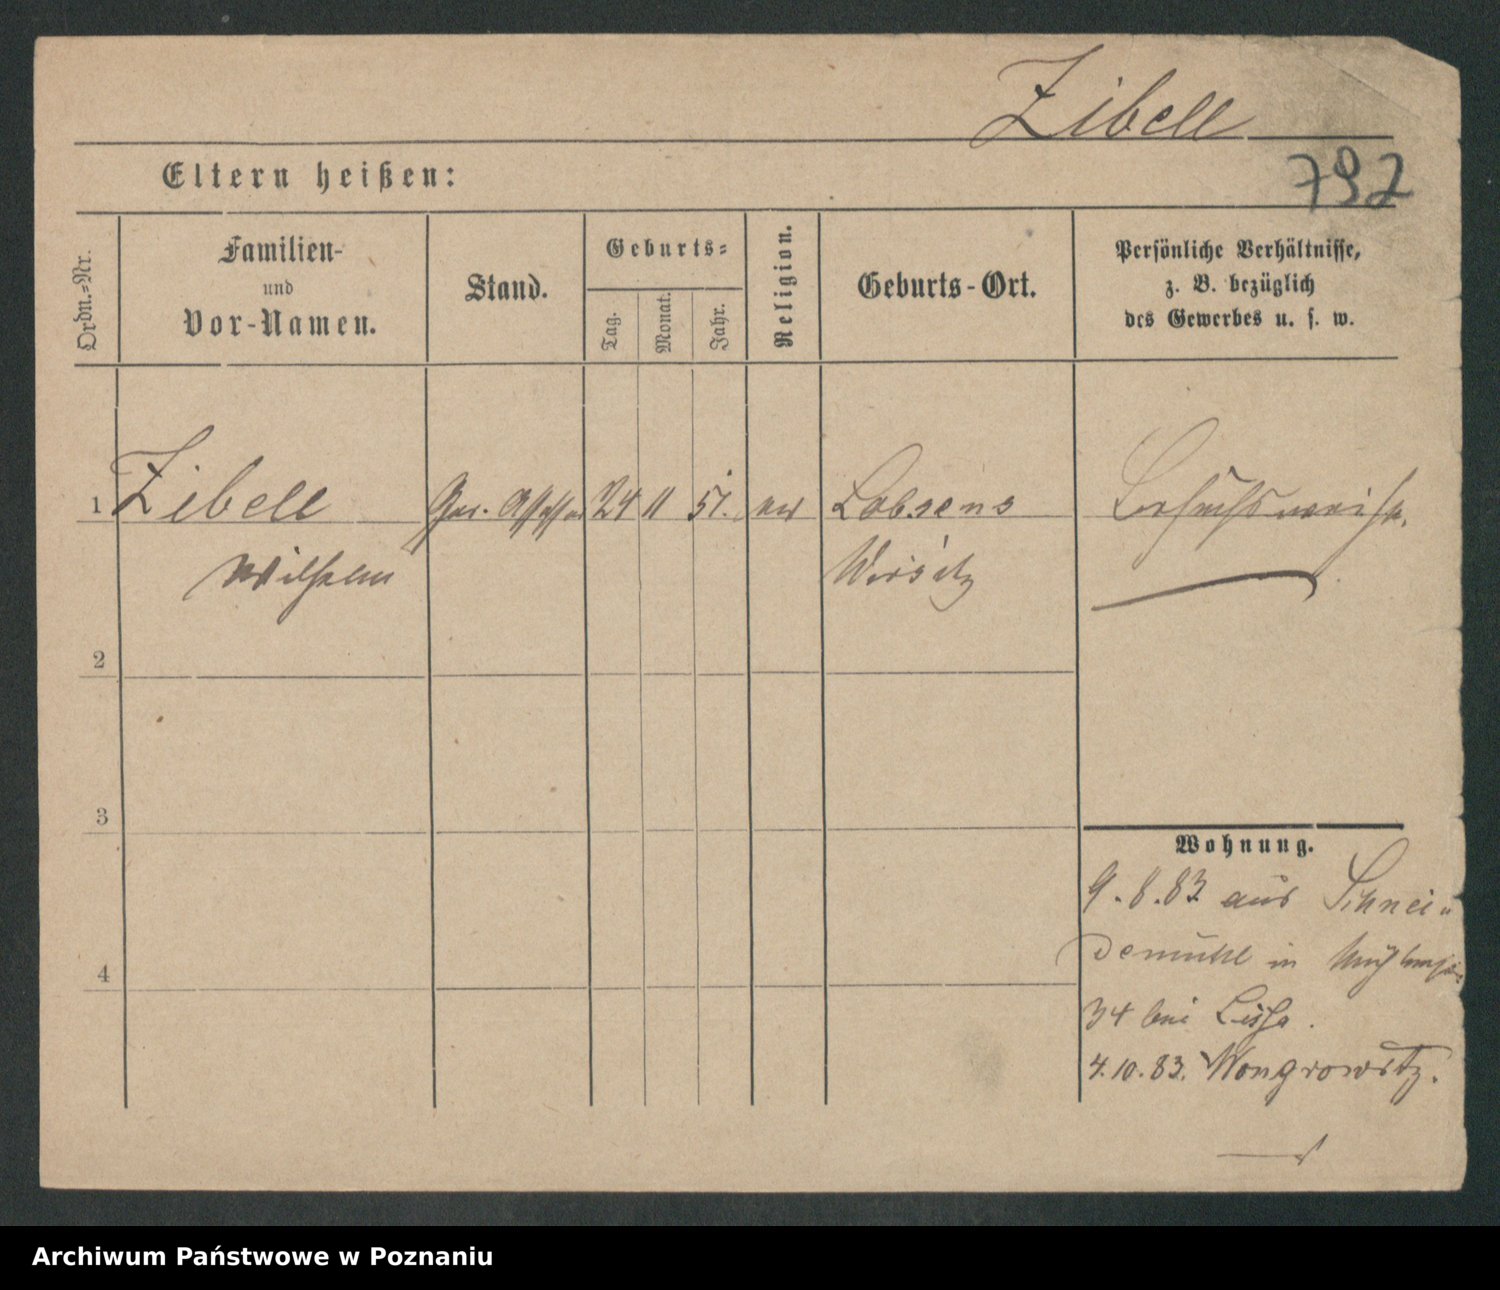 Zibell
Eltern heißen:
792
Ordn.-Nr.
Familien-
und
Vor-Namen.
Stand.
Geburts-
Tag.
Monat.
Jahr.
Religion.
Geburts-Ort.
Persönliche Verhältnisse,
z. B. bezüglich
des Gewerbes u. s. w.
1 Zibell Ger. Assessor 24 11 51. ev Lobsens Besuchsweise.
Wilhelm Wirsitz
2
3
4
Wohnung.
9.8.83 aus Schnei-
demühl in
34 bei Lissa.
4.10.83. Wongrowitz.
Archiwum Państwowe w Poznaniu